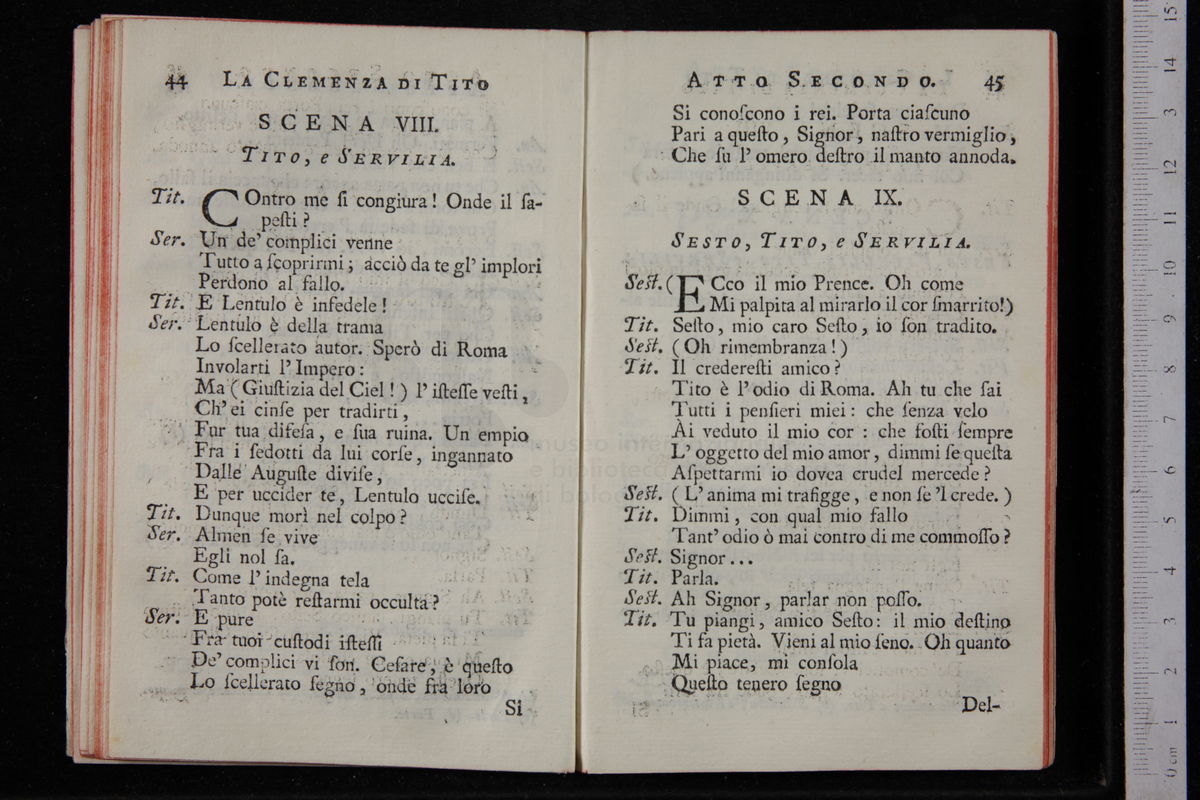 44 LA CLEMENZA DI TITO
SCENA VIII.
TITO, e SERVILIA.
Tit. COntro me ſi congiura! Onde il ſa-
peſti?
Ser. Un de' complici venne
Tutto a ſcoprirmi; acciò da te gl' implori
Perdono al fallo.
Tit. E Lentulo è infedele!
Ser. Lentulo è della trama
Lo ſcellerato autor. Sperò di Roma
Involarti l' Impero:
Ma (Giuſtizia del Ciel!) l' iſteſſe veſti,
Ch' ei cinſe per tradirti,
Fur tua difeſa, e ſua ruina. Un empio
Fra i ſedotti da lui corſe, ingannato
Dalle Auguſte diviſe,
E per uccider te, Lentulo ucciſe.
Tit. Dunque morì nel colpo?
Ser. Almen ſe vive
Egli nol ſa.
Tit. Come l' indegna tela
Tanto potè reſtarmi occulta?
Ser. E pure
Fra tuoi cuſtodi iſteſſi
De' complici vi ſon. Ceſare, è queſto
Lo ſcellerato ſegno, onde fra loro
Si
ATTO SECONDO. 45
Si conoſcono i rei. Porta ciaſcuno
Pari a queſto, Signor, naſtro vermiglio,
Che ſu l' omero deſtro il manto annoda.
SCENA IX.
SESTO, TITO, e SERVILIA.
Seſt. (ECco il mio Prence. Oh come
Mi palpita al mirarlo il cor ſmarrito!)
Tit. Seſto, mio caro Seſto, io ſon tradito.
Seſt. (Oh rimembranza!)
Tit. Il credereſti amico?
Tito è l' odio di Roma. Ah tu che ſai
Tutti i penſieri miei: che ſenza velo
Ài veduto il mio cor: che foſti ſempre
L' oggetto del mio amor, dimmi ſe queſta
Aſpettarmi io dovea crudel mercede?
Seſt. (L' anima mi trafigge, e non ſe 'l crede.)
Tit. Dimmi, con qual mio fallo
Tant' odio ò mai contro di me commoſſo?
Seſt. Signor...
Tit. Parla.
Seſt. Ah Signor, parlar non poſſo.
Tit. Tu piangi, amico Seſto: il mio deſtino
Ti fa pietà. Vieni al mio ſeno. Oh quanto
Mi piace, mi conſola
Queſto tenero ſegno
Del-